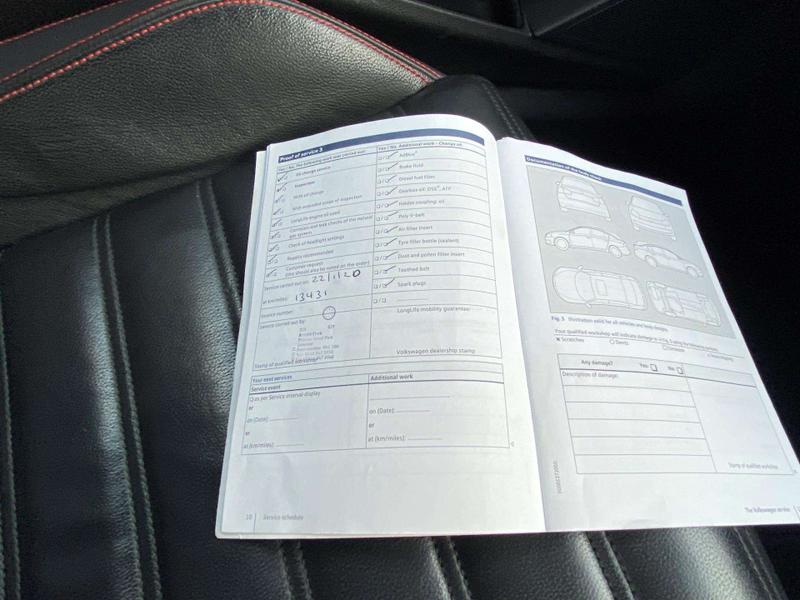 Proof of service 3
Yes / No The following work was carried out:
Oil change service
Inspection
With oil change
With expanded scope of inspection
LongLife engine oil used
Corrosion and leak checks of the natural
gas system
Check of headlight settings
Repairs recommended
Customer request
(this should also be noted on the order)
Service carried out on: 22/1/20
at km/miles: 13431
Invoice number:
Service carried out by:
Stamp of qualified workshop
Yes / No Additional work – Change on
AdBlue®
Brake fluid
Diesel fuel filter
Gearbox oil: DSG®, ATF
Haldex coupling: oil
Poly V-belt
Air filter insert
Tyre filler bottle (sealant)
Dust and pollen filter insert
Toothed belt
Spark plugs
LongLife mobility guarantee
Volkswagen dealership stamp
Your next services
Service event
as per Service interval display
or
on (Date):
or
at (km/miles):
Additional work
on (Date):
or
at (km/miles):
10 Service schedule
Documentation of the body check
Fig. 3 Illustration valid for all vehicles and body designs.
Your qualified workshop will indicate damage
Scratches
Dents
Any damage? Yes No
Description of damage:
Stamp of qualified workshop
The Volkswagen service